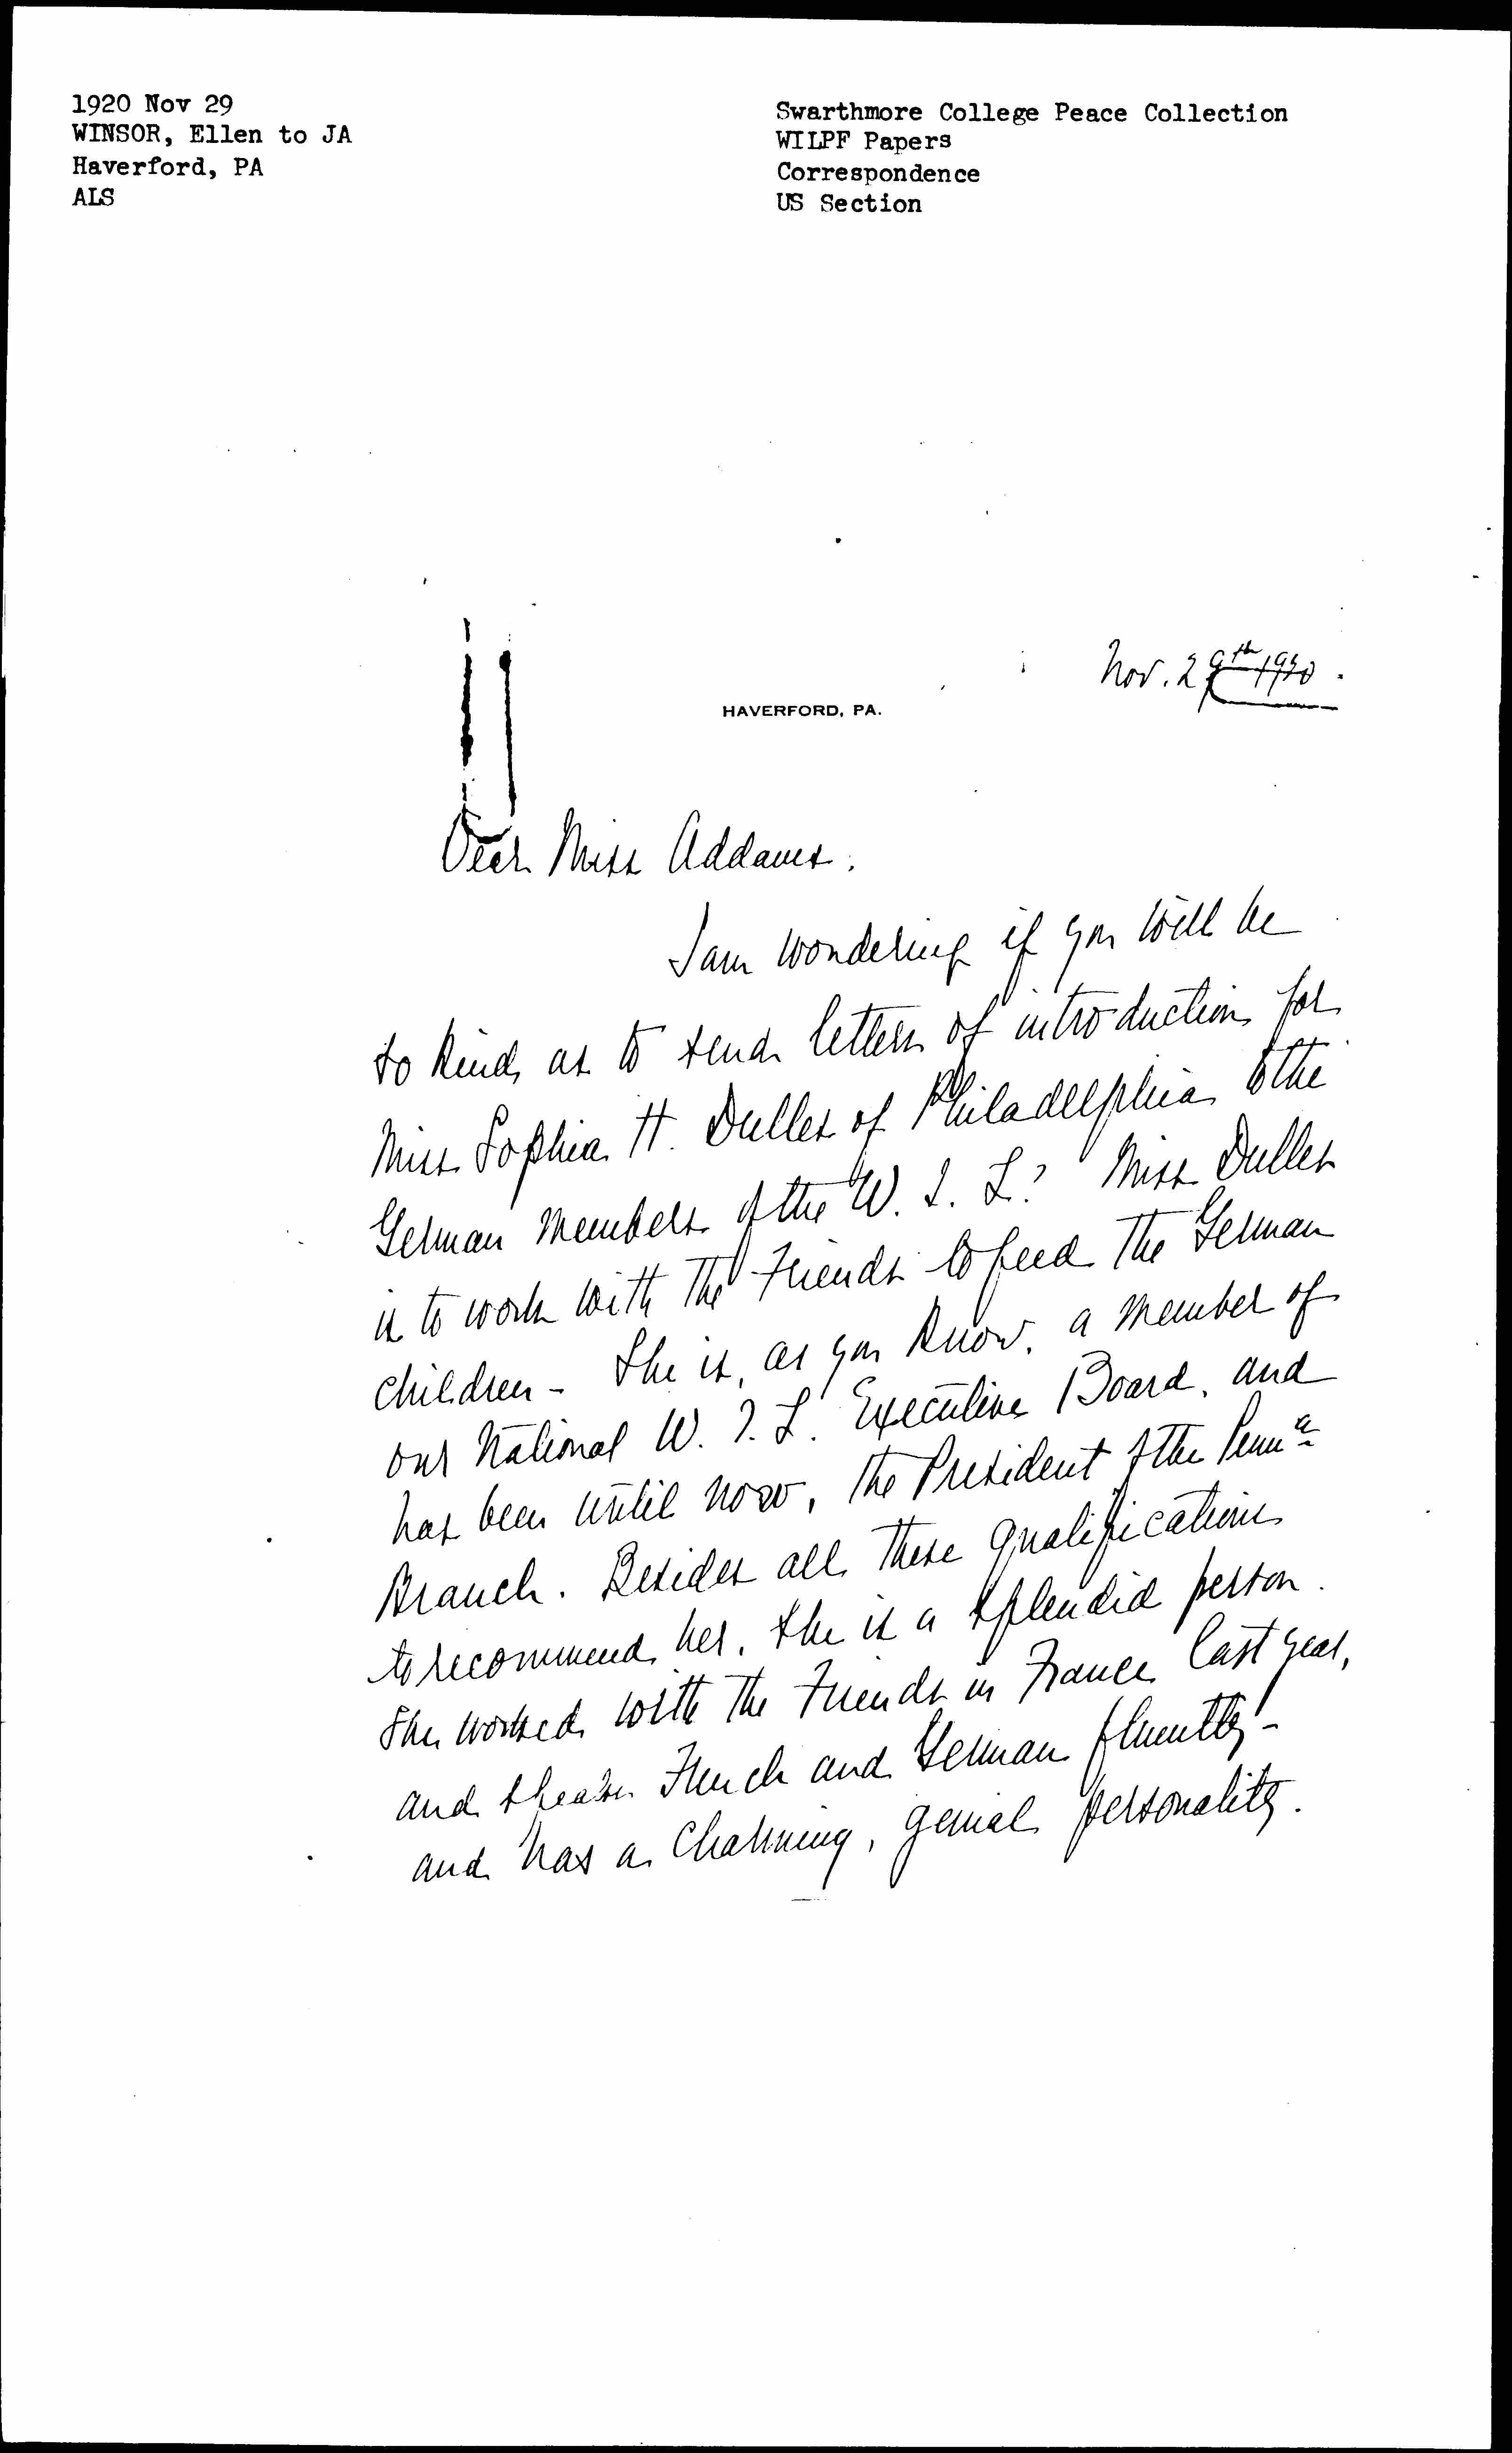 1920 Nov 29
WINSOR, Ellen to JA
Haverford, PA
ALS
Swarthmore College Peace Collection
WILPF Papers
Correspondence
US Section
Nov. 29th 1920.
HAVERFORD, PA.
Dear Miss Addams.
I am wondering if you will be
so kind as to send letters of introduction for
Miss Sophia H. Dulles of Philadelphia to the
German members of the W. I. L? Miss Dulles
is to work with the Friends to feed the German
children - She is, as you know, a member of
our National W. I. L. Executive Board, and
has been until now, the President of the Penna
Branch. Besides all these qualifications
to recommend her, she is a splendid person.
She worked with the Friends in France last year,
and speaks French and German fluently -
and has a charming, genial personality.